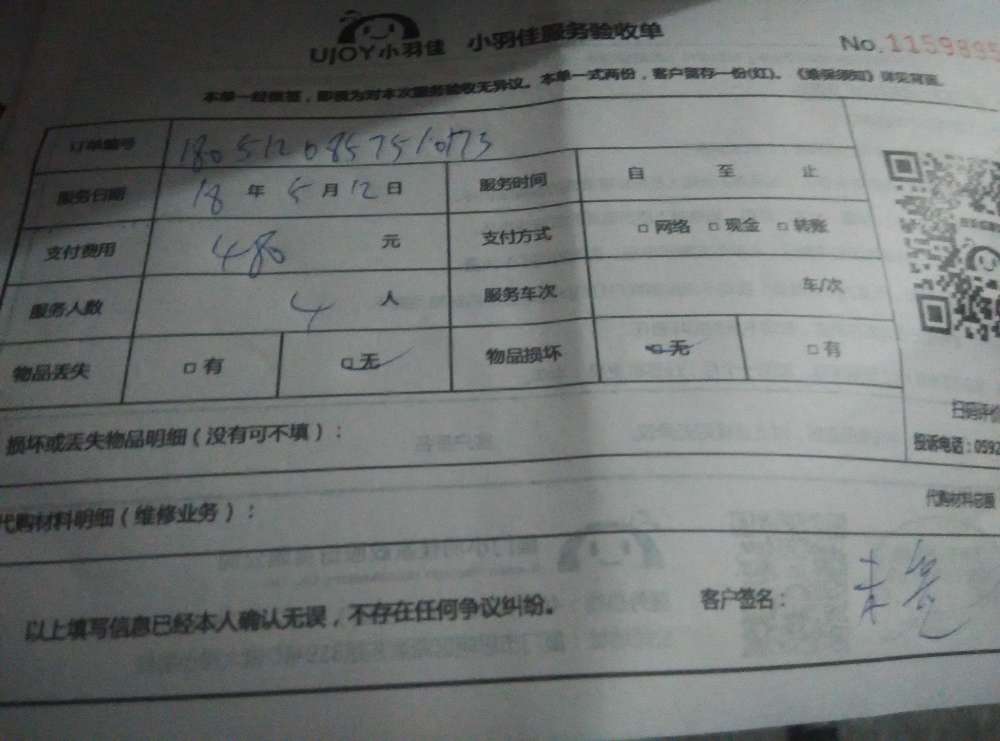 UJOY小羽佳 小羽佳服务验收单
No.1159895
本单一经签署，即视为对本次服务验收无异议。本单一式两份，客户留存一份(红)。《维保须知》详见背面
订单编号 180512085751
服务日期 18年5月12日 服务时间 自 至 止
支付费用 480元 支付方式 □网络 □现金 □转账
服务人数 4人 服务车次 车/次
物品丢失 □有 □无 物品损坏 □无 □有
扫码评价
损坏或丢失物品明细（没有可不填）：
投诉电话：0592
代购材料明细（维修业务）：
代购材料总额
以上填写信息已经本人确认无误，不存在任何争议纠纷。
客户签名：